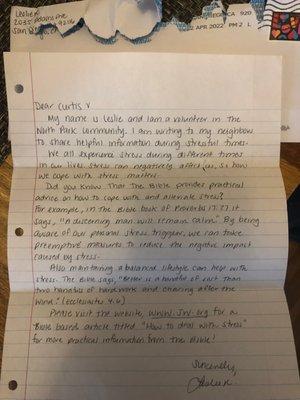 Leslie K
2035 Adams Ave
San Diego, CA 92116
CA 920
22 APR 2022 PM 2 L
FOREVER
USA
Dear Curtis V
My name is Leslie and I am a volunteer in the
North Park community. I am writing to my neighbors
to share helpful information during stressful times.
We all experience stress during different times
in our lives. Stress can negatively affect us, so how
we cope with stress matters.
Did you know that the Bible provides practical
advice on how to cope with and alleviate stress?
For example, in the Bible book of Proverbs 17:27 it
says, "A discerning man will remain calm." By being
aware of our personal stress triggers, we can take
preemptive measures to reduce the negative impact
caused by stress.
Also maintaining a balanced lifestyle can help with
stress. The Bible says, "Better is a handful of rest than
two handfuls of hard work and chasing after the
wind." (Ecclesiastes 4:6)
Please visit the website, www.JW.org for a
Bible based article titled "How to deal with stress"
for more practical information from the Bible!
Sincerely,
Leslie K.